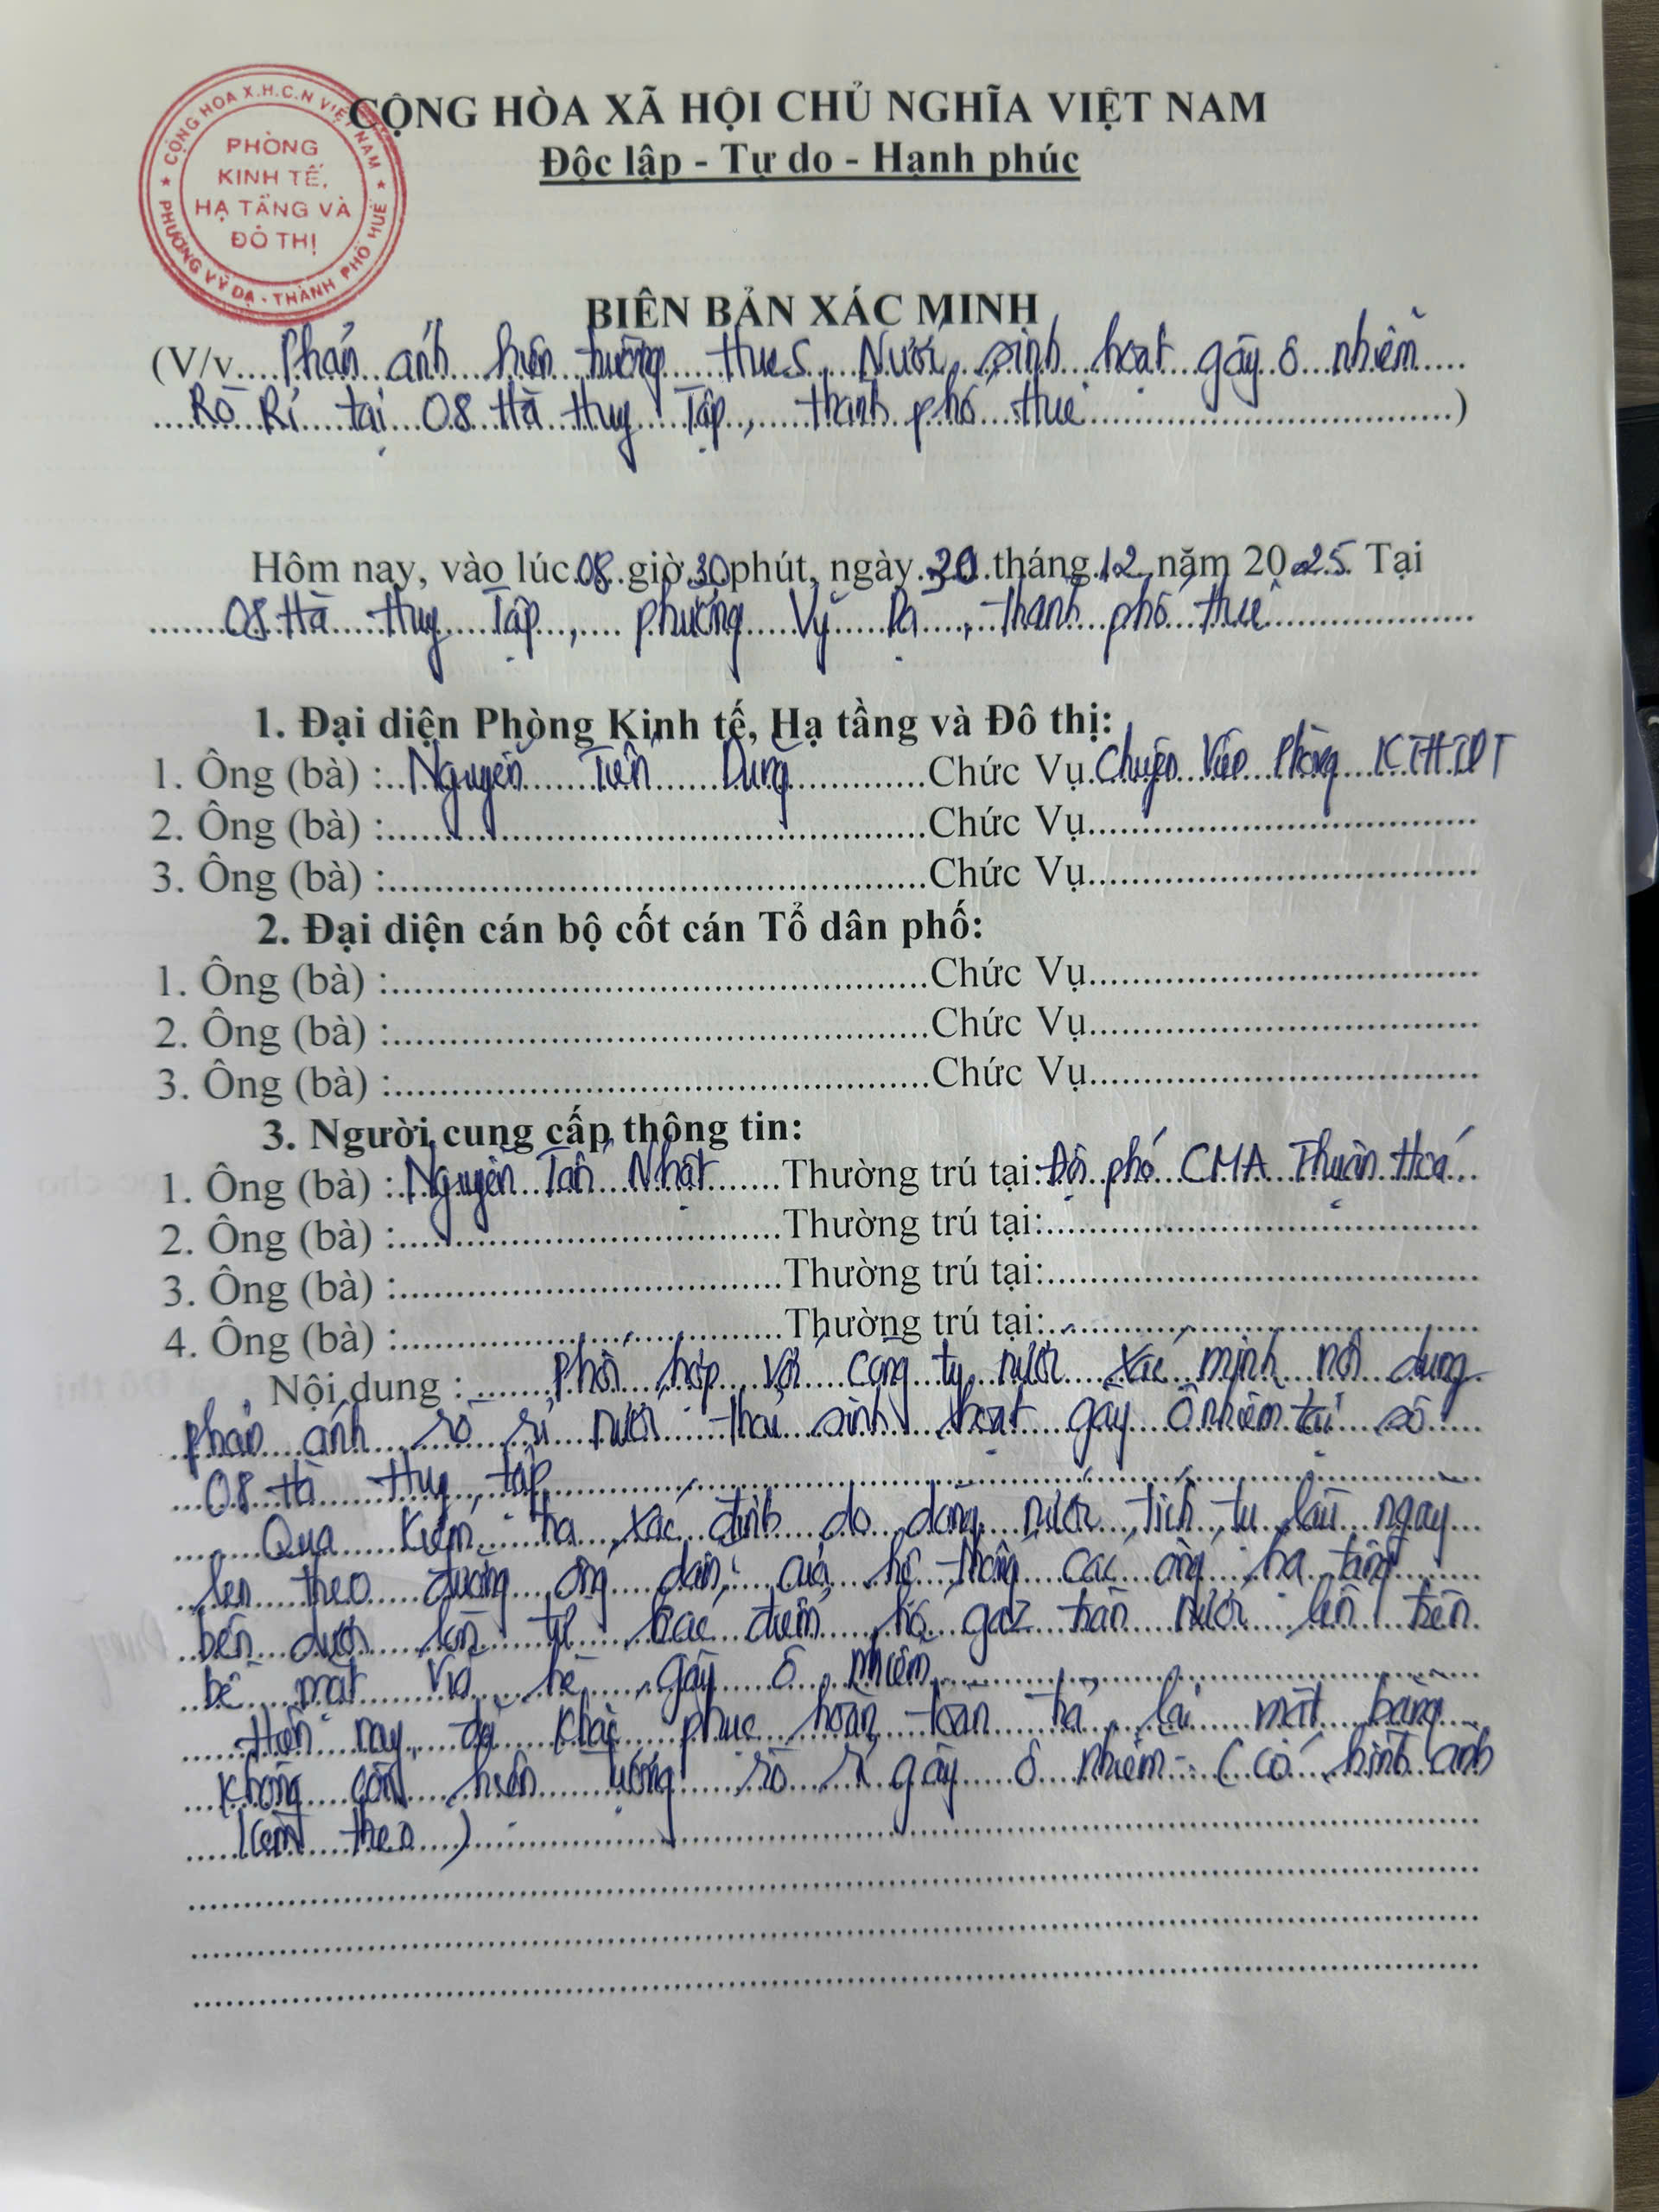 CỘNG HÒA X.H.C.N VIỆT NAM
PHÒNG
KINH TẾ,
HẠ TẦNG VÀ
ĐÔ THỊ
PHƯỜNG VỸ DẠ - THÀNH PHỐ HUẾ
CỘNG HÒA XÃ HỘI CHỦ NGHĨA VIỆT NAM
Độc lập - Tự do - Hạnh phúc
BIÊN BẢN XÁC MINH
(V/v.... Phản ánh hiện tường Hues, Nước sinh hoạt gây ô nhiễm ....
Rò Rỉ tại 08 Hà Huy Tập, thành phố Huế ....)
Hôm nay, vào lúc 08 giờ 30 phút, ngày 30 tháng 12 năm 2025. Tại
08 Hà Huy Tập, phường Vỹ Dạ, Thành phố Huế
1. Đại diện Phòng Kinh tế, Hạ tầng và Đô thị:
1. Ông (bà) : Nguyễn Tiến Dũng Chức Vụ Chuyên Viên Phòng KTHTĐT
2. Ông (bà) :.... Chức Vụ....
3. Ông (bà) :.... Chức Vụ....
2. Đại diện cán bộ cốt cán Tổ dân phố:
1. Ông (bà) :.... Chức Vụ....
2. Ông (bà) :.... Chức Vụ....
3. Ông (bà) :.... Chức Vụ....
3. Người cung cấp thông tin:
1. Ông (bà) : Nguyễn Tấn Nhật Thường trú tại: Đội phó CMA Thuận Hoá
2. Ông (bà) :.... Thường trú tại:....
3. Ông (bà) :.... Thường trú tại:....
4. Ông (bà) :.... Thường trú tại:....
Nội dung : Phối hợp với công ty nước xác minh nội dung
phản ánh rò rỉ nước thải sinh hoạt gây ô nhiễm tại số
08 Hà Huy tập
Qua kiểm tra xác định do dòng nước tích tụ lâu ngày
len theo đường ống dẫn của hệ thống các ống hạ tầng
bên dưới từ điểm hố gaz tràn nước lên trên
bề mặt vỉa hè gây ô nhiễm
Hiện nay, đã khắc phục hoàn toàn trả lại mặt bằng
không còn hiện tượng rò rỉ gây ô nhiễm. (có hình ảnh
kèm theo)